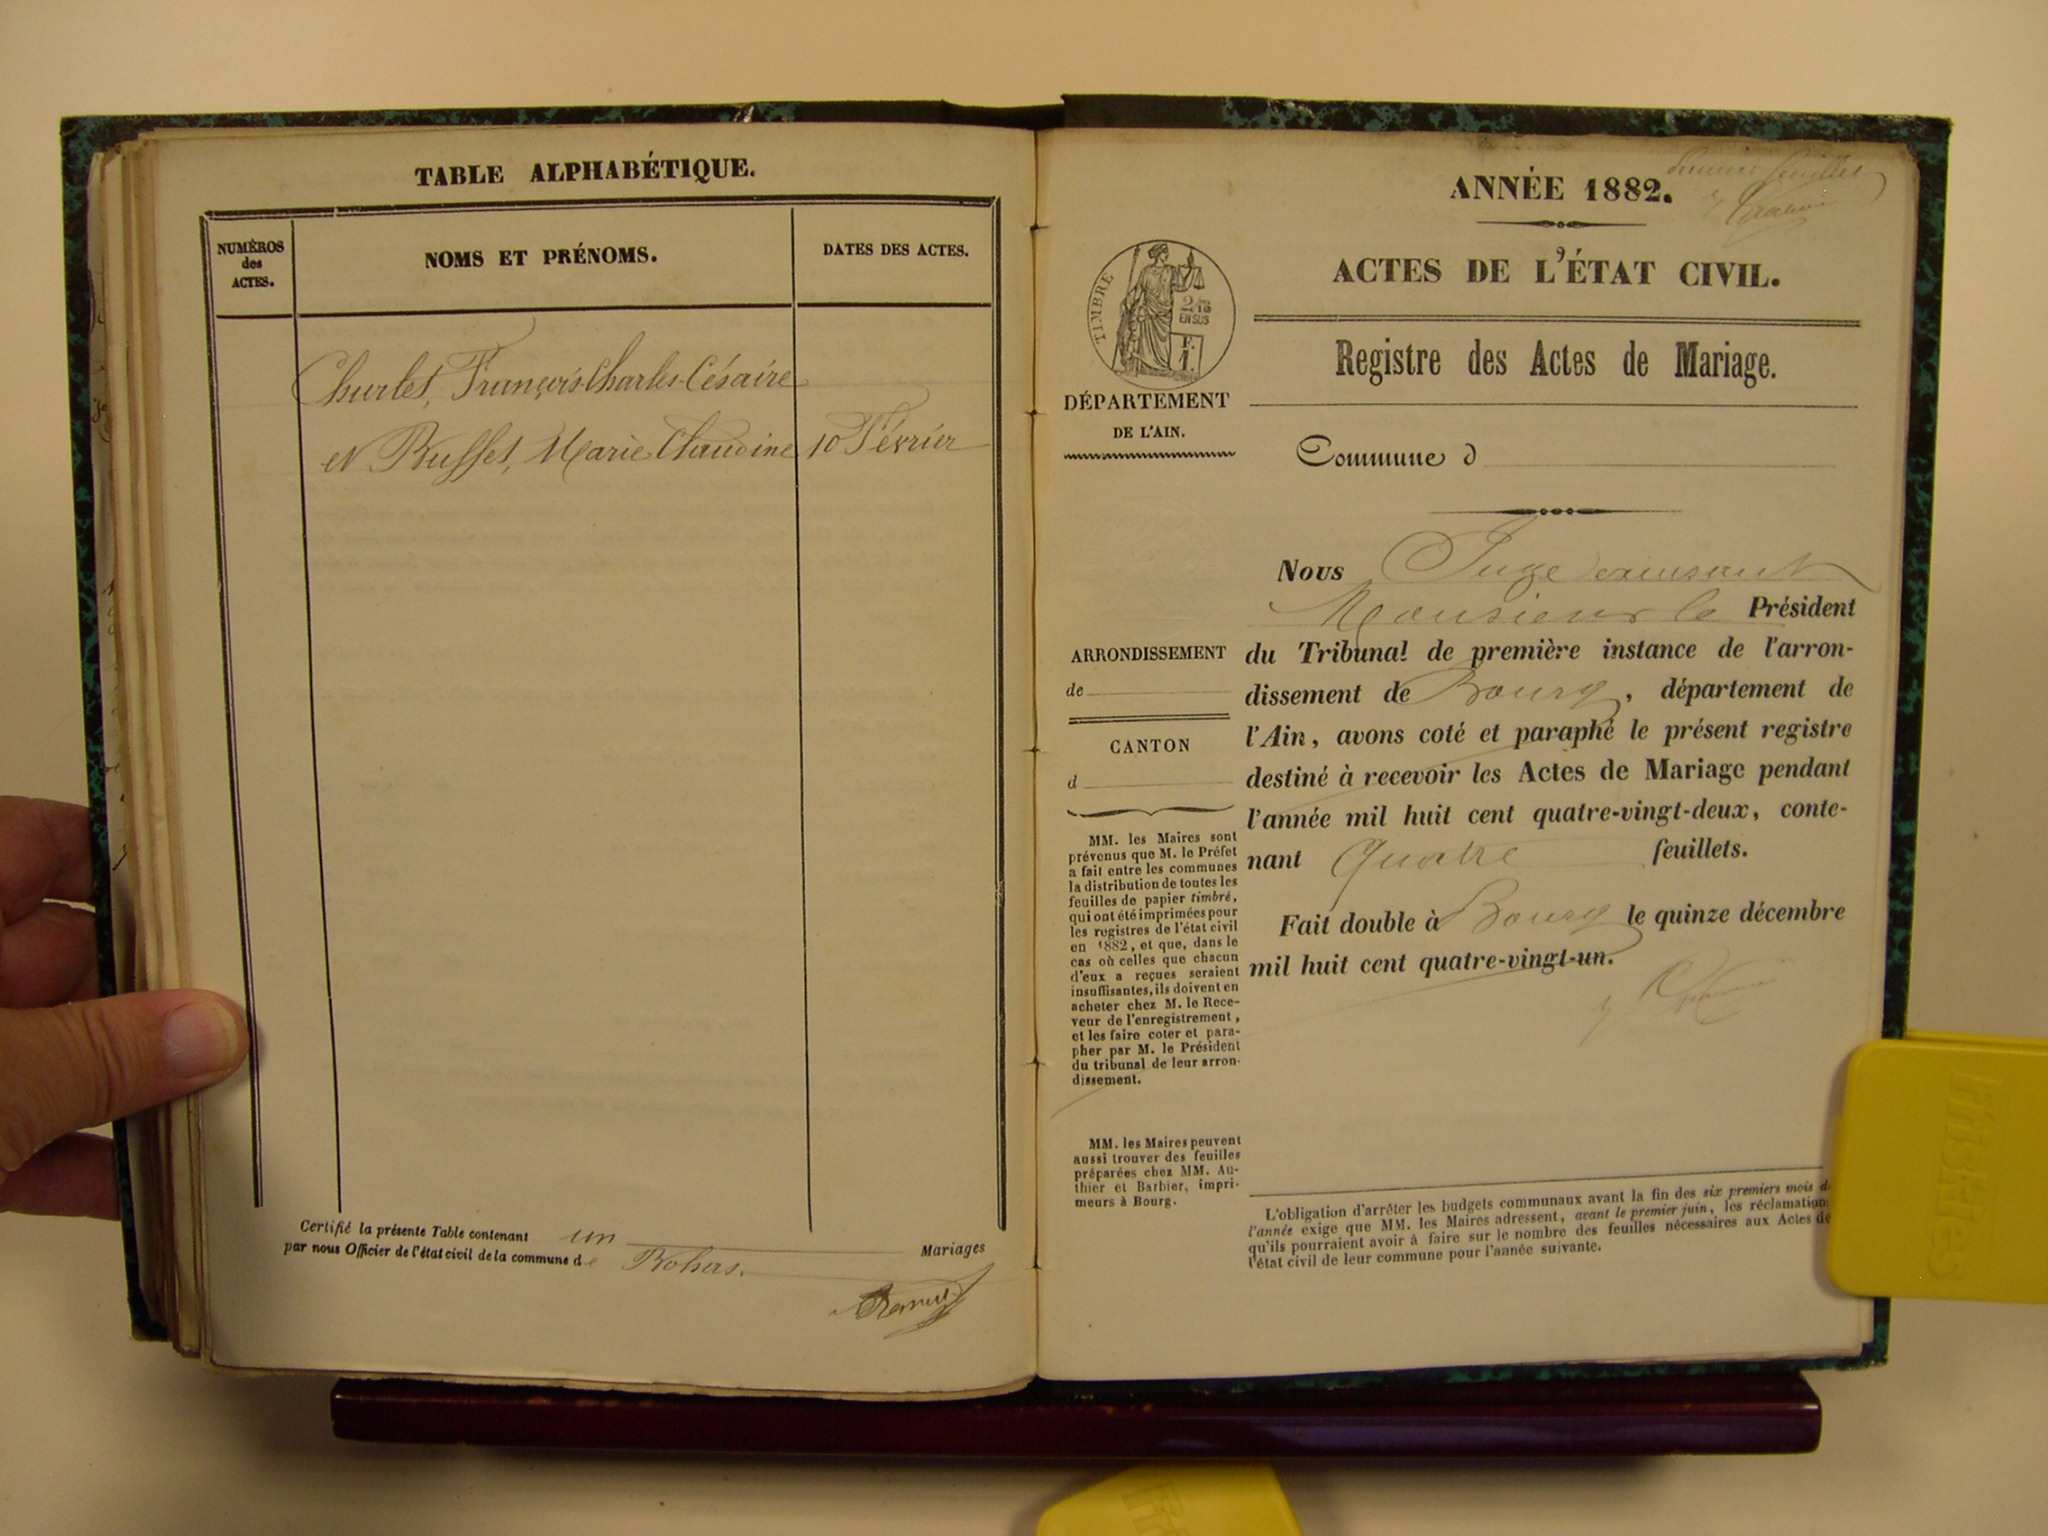 TABLE ALPHABÉTIQUE.
NUMÉROS
des
ACTES.
NOMS ET PRÉNOMS.
DATES DES ACTES.
Churlet, François Charles Césaire
et Buffet, Marie Claudine 10 Février
Certifié la présente Table contenant un Mariages
par nous Officier de l'état civil de la commune de
ANNÉE 1882.
premier feuillet
ACTES DE L'ÉTAT CIVIL.
TIMBRE
2/10
EN SUS
Registre des Actes de Mariage.
DÉPARTEMENT
DE L'AIN.
Commune d
Nous Juge
Monsieur le Président
du Tribunal de première instance de l'arron-
dissement de Bourg, département de
l'Ain, avons coté et paraphé le présent registre
destiné à recevoir les Actes de Mariage pendant
l'année mil huit cent quatre-vingt-deux, conte-
nant Quatre feuillets.
Fait double à Bourg le quinze décembre
mil huit cent quatre-vingt-un.
ARRONDISSEMENT
de
CANTON
d
MM. les Maires sont
prévenus que M. le Préfet
a fait entre les communes
la distribution de toutes les
feuilles de papier timbré,
qui ont été imprimées pour
les registres de l'état civil
en 1882, et que, dans le
cas où celles que chacun
d'eux a reçues seraient
insuffisantes, ils doivent en
acheter chez M. le Rece-
veur de l'enregistrement,
et les faire coter et para-
pher par M. le Président
du tribunal de leur arron-
dissement.
MM. les Maires peuvent
aussi trouver des feuilles
préparées chez MM. Au-
thier et Barbier, impri-
meurs à Bourg.
L'obligation d'arrêter les budgets communaux avant la fin des six premiers mois d
l'année exige que MM. les Maires adressent, avant le premier juin, les réclamation
qu'ils pourraient avoir à faire sur le nombre des feuilles nécessaires aux Actes de
l'état civil de leur commune pour l'année suivante.